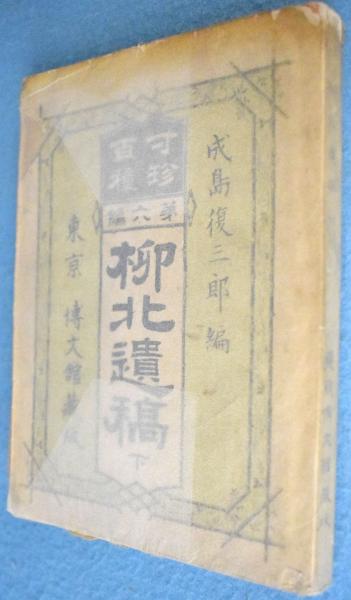 成島復三郎編
寸珍
百種
第六編
柳北遺稿 下
東京 博文館蔵版